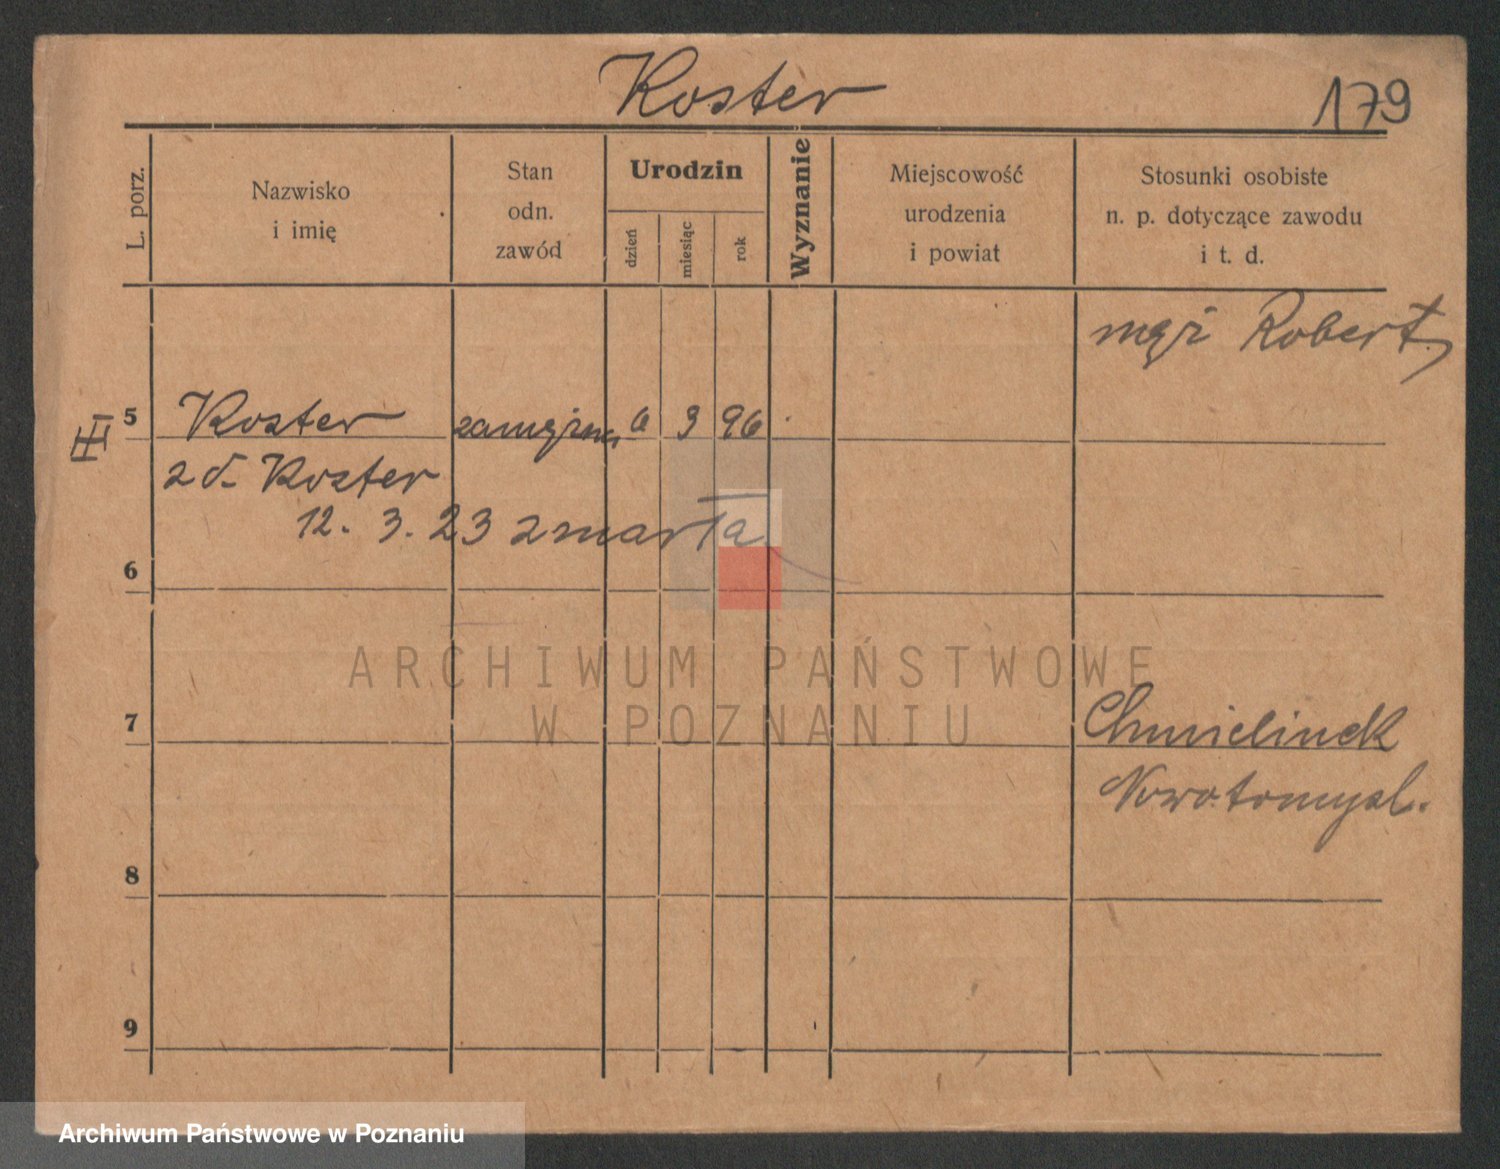 Koster
179
L. porz.
Nazwisko
i imię
Stan
odn.
zawód
Urodzin
dzień
miesiąc
rok
Wyznanie
Miejscowość
urodzenia
i powiat
Stosunki osobiste
n. p. dotyczące zawodu
i t. d.
mąż Robert
III
5 Koster zamężna 6 3 96
z d. Koster
12. 3. 23 zmarła
6
ARCHIWUM PAŃSTWOWE
W POZNANIU
7
Chmielinek
Nowotomysl.
8
9
Archiwum Państwowe w Poznaniu